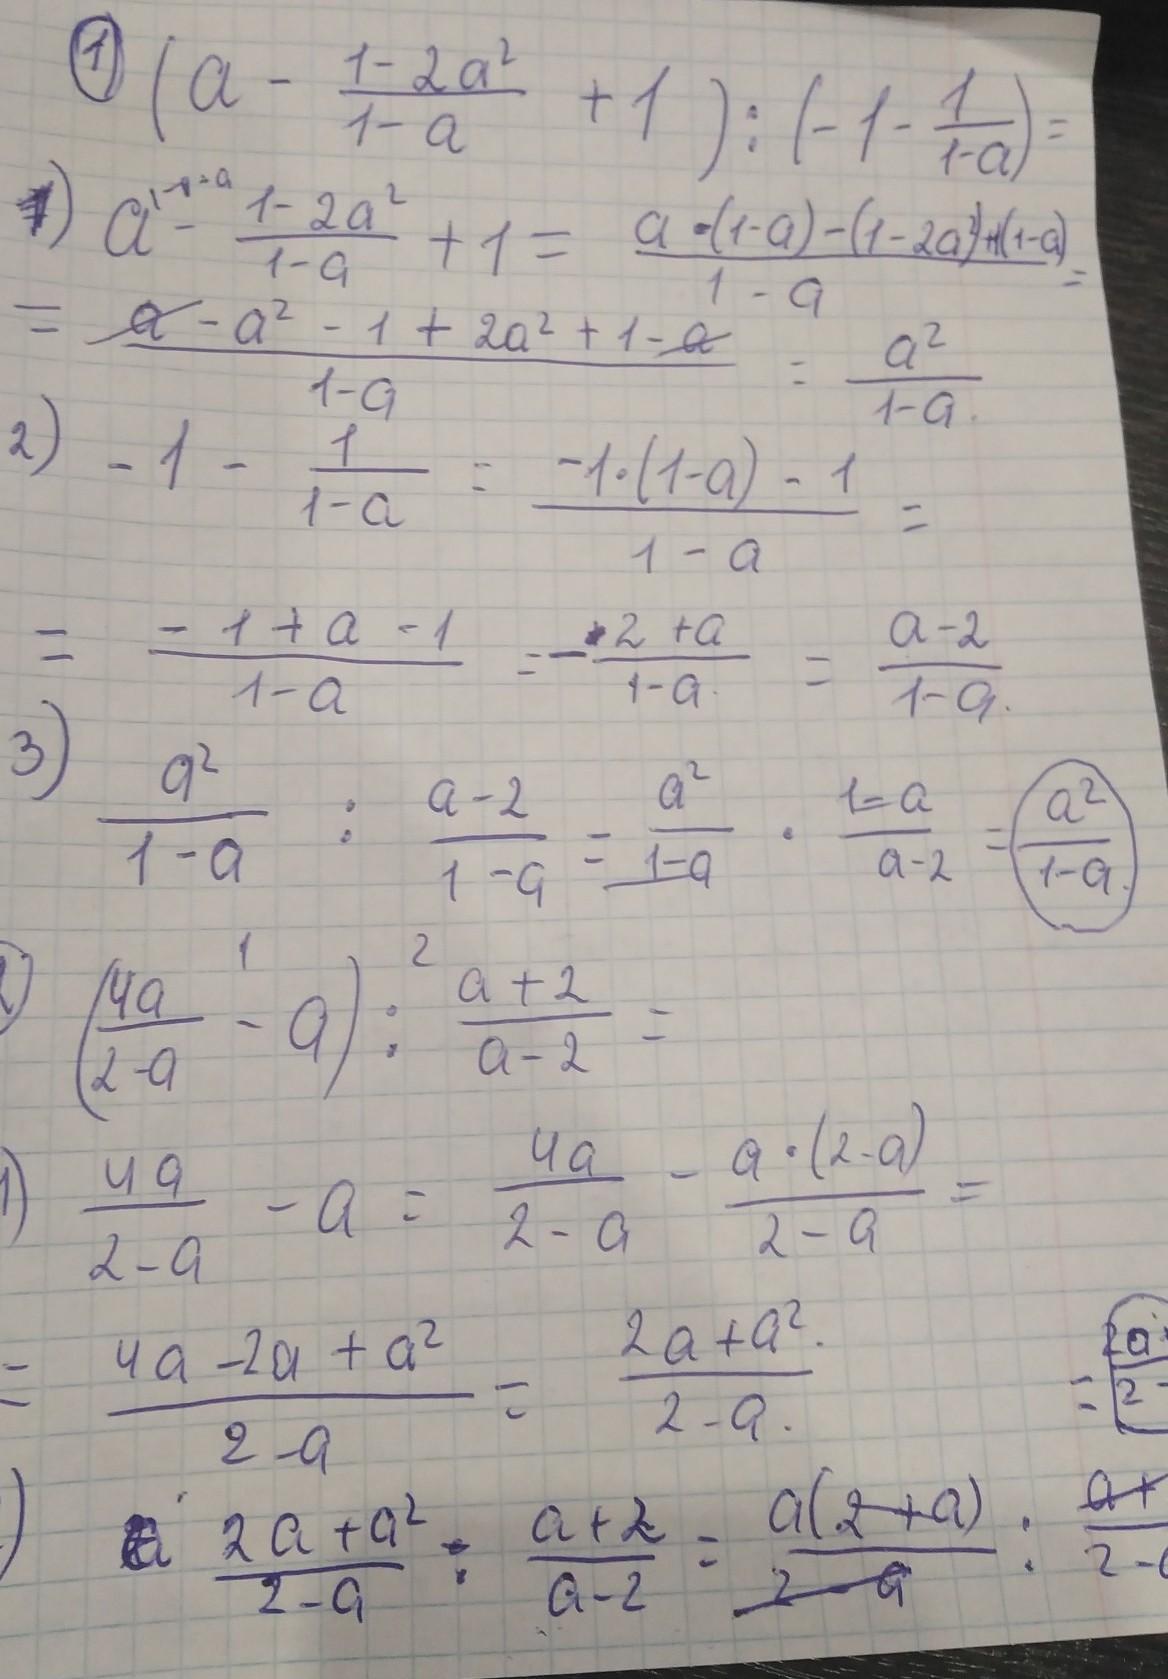 ① (a - (1-2a²)/(1-a) + 1) : (-1 - 1/(1-a)) =
1) a - (1-2a²)/(1-a) + 1 = (a·(1-a)-(1-2a²)+(1-a))/(1-a) =
= (a-a²-1+2a²+1-a)/(1-a) = a²/(1-a).
2) -1 - 1/(1-a) = (-1·(1-a)-1)/(1-a) =
= (-1+a-1)/(1-a) = (-2+a)/(1-a). = (a-2)/(1-a).
3) a²/(1-a) : (a-2)/(1-a) = a²/(1-a) · (1-a)/(a-2) = a²/(1-a).
1 2
(4a/(2-a) - a) : (a+2)/(a-2) =
1) 4a/(2-a) - a = 4a/(2-a) - a·(2-a)/(2-a) =
= (4a-2a+a²)/(2-a) = (2a+a²)/(2-a). =
) (2a+a²)/(2-a) : (a+2)/(a-2) = a(2+a)/(2-a) :